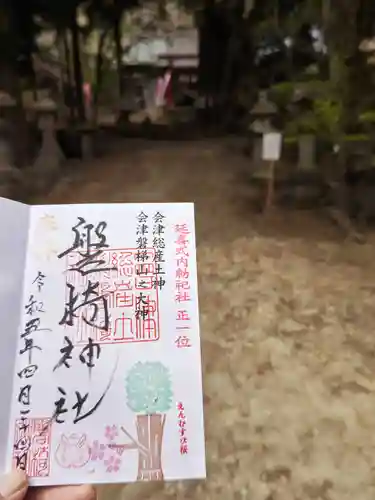 延喜式内勅祀社 正一位
会津総産土神
会津磐梯山之大神
磐椅神社
令和五年四月二十四日
えんむすび桜